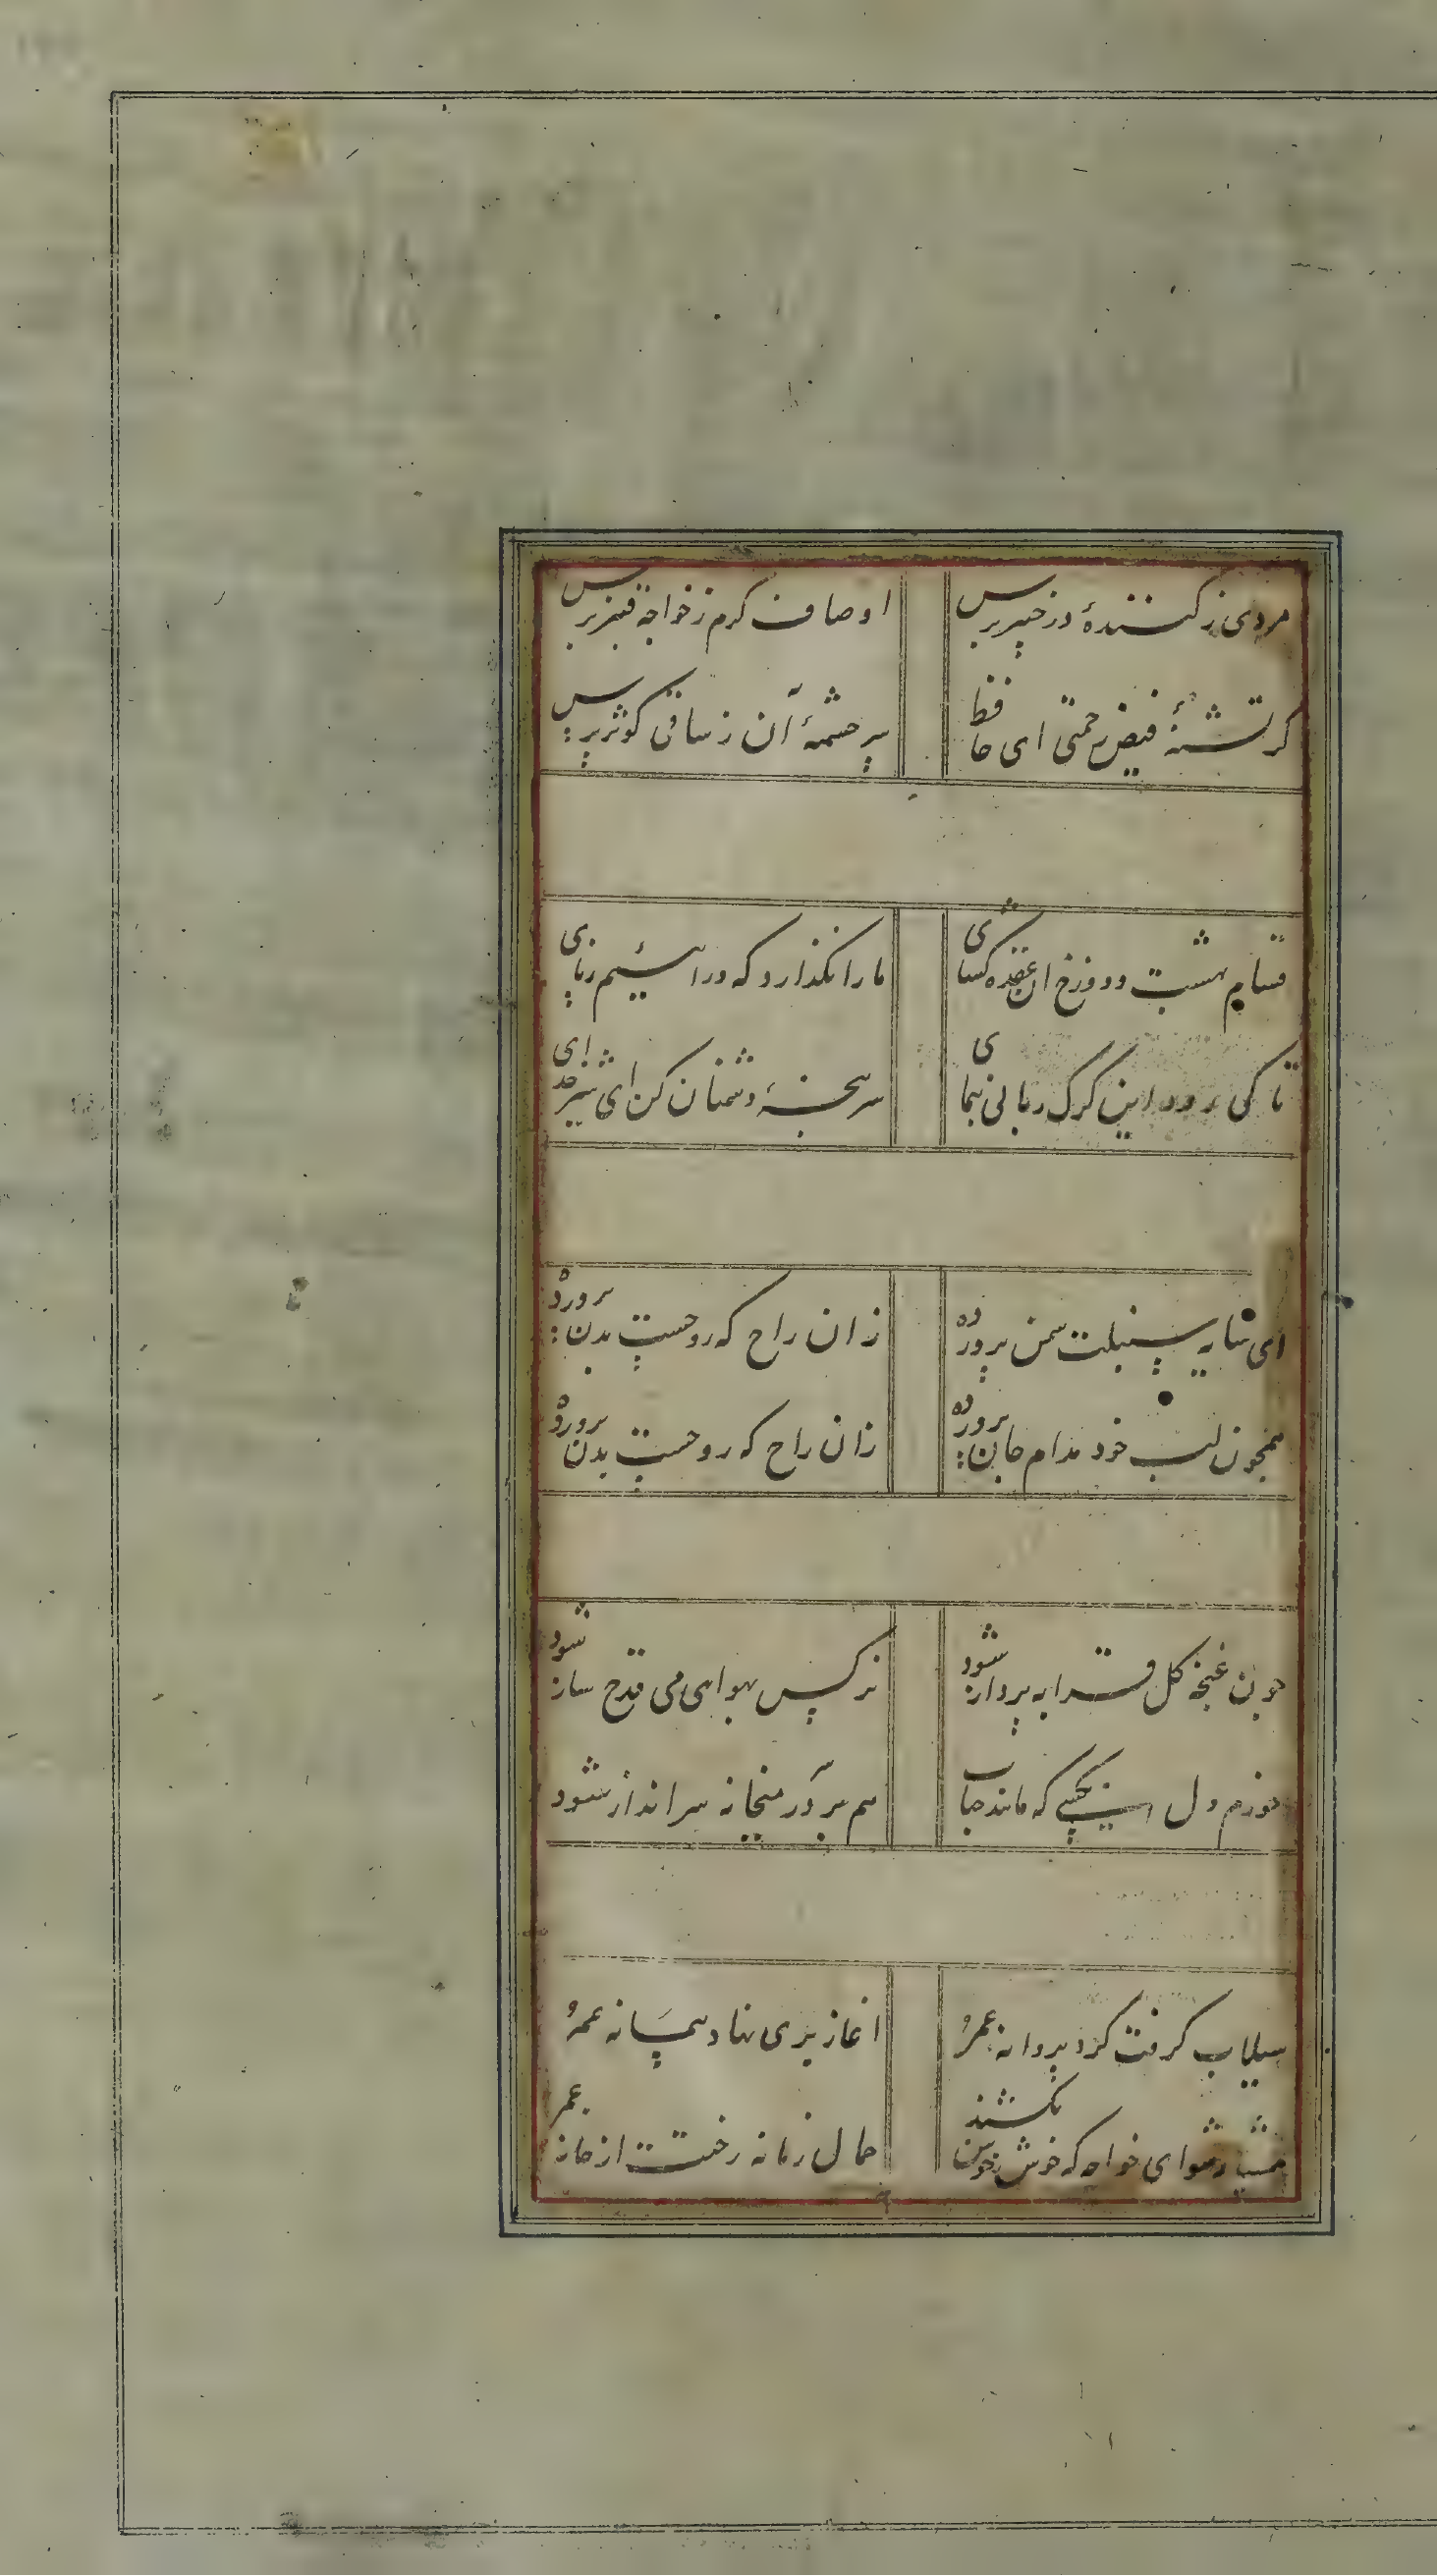 مردی ز کننده در خیبر پرس اوصاف کرم ز خواجه قنبر پرس
کر تشنهٔ فیض رحمتی ای حافظ سرچشمهٔ آن ز ساقی کوثر پرس
قسام بهشت و دوزخ ان عقده کشای ما را نکذارد که در اییم ز پای
تا کی رود این کرک ربائی بنمای سرپنجهٔ دشمنان کن ای شیر خدای
ای سایه سنبلت سمن پرورده زان راح که روحیست بدن پرورده
همچون لب خود مدام جان پرورده زان راح که روحیست بدن پرورده
چون غنچه کل قرابه پرداز شود نرکس بهوای می قدح ساز شود
دل کسی که مانند حباب هم بر در میخانه سرانداز شود
سیلاب کرفت کرد پروانه عمر اغاز پری نهاد پیمانه عمر
هشیار شو ای خواجه که خوش خوش بکشند حمال زمانه رخت از خانه عمر